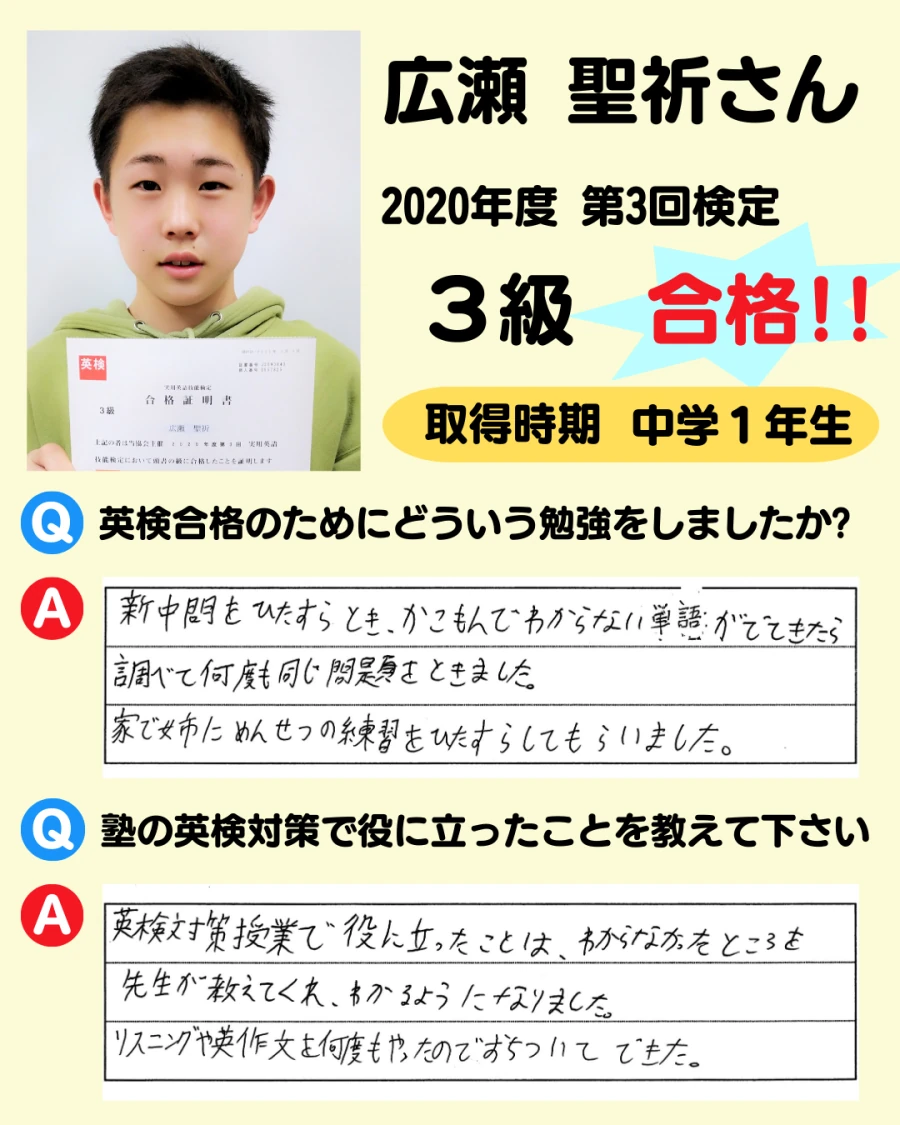 広瀬 聖祈さん
2020年度 第3回検定
3級 合格!!
取得時期 中学1年生
英検
実用英語技能検定
合格証明書
3級
広瀬 聖祈
上記の者は当協会主催 年度第3回 実用英語
技能検定において頭書の級に合格したことを証明します
Q 英検合格のためにどういう勉強をしましたか?
A 新中問をひたすらとき、かこもんでわからない単語がでてきたら
調べて何度も同じ問題をときました。
家で姉にめんせつの練習をひたすらしてもらいました。
Q 塾の英検対策で役に立ったことを教えて下さい
A 英検対策授業で役に立ったことは、わからなかったところを
先生が教えてくれ、わかるようになりました。
リスニングや英作文を何度もやったのでおちついてできた。